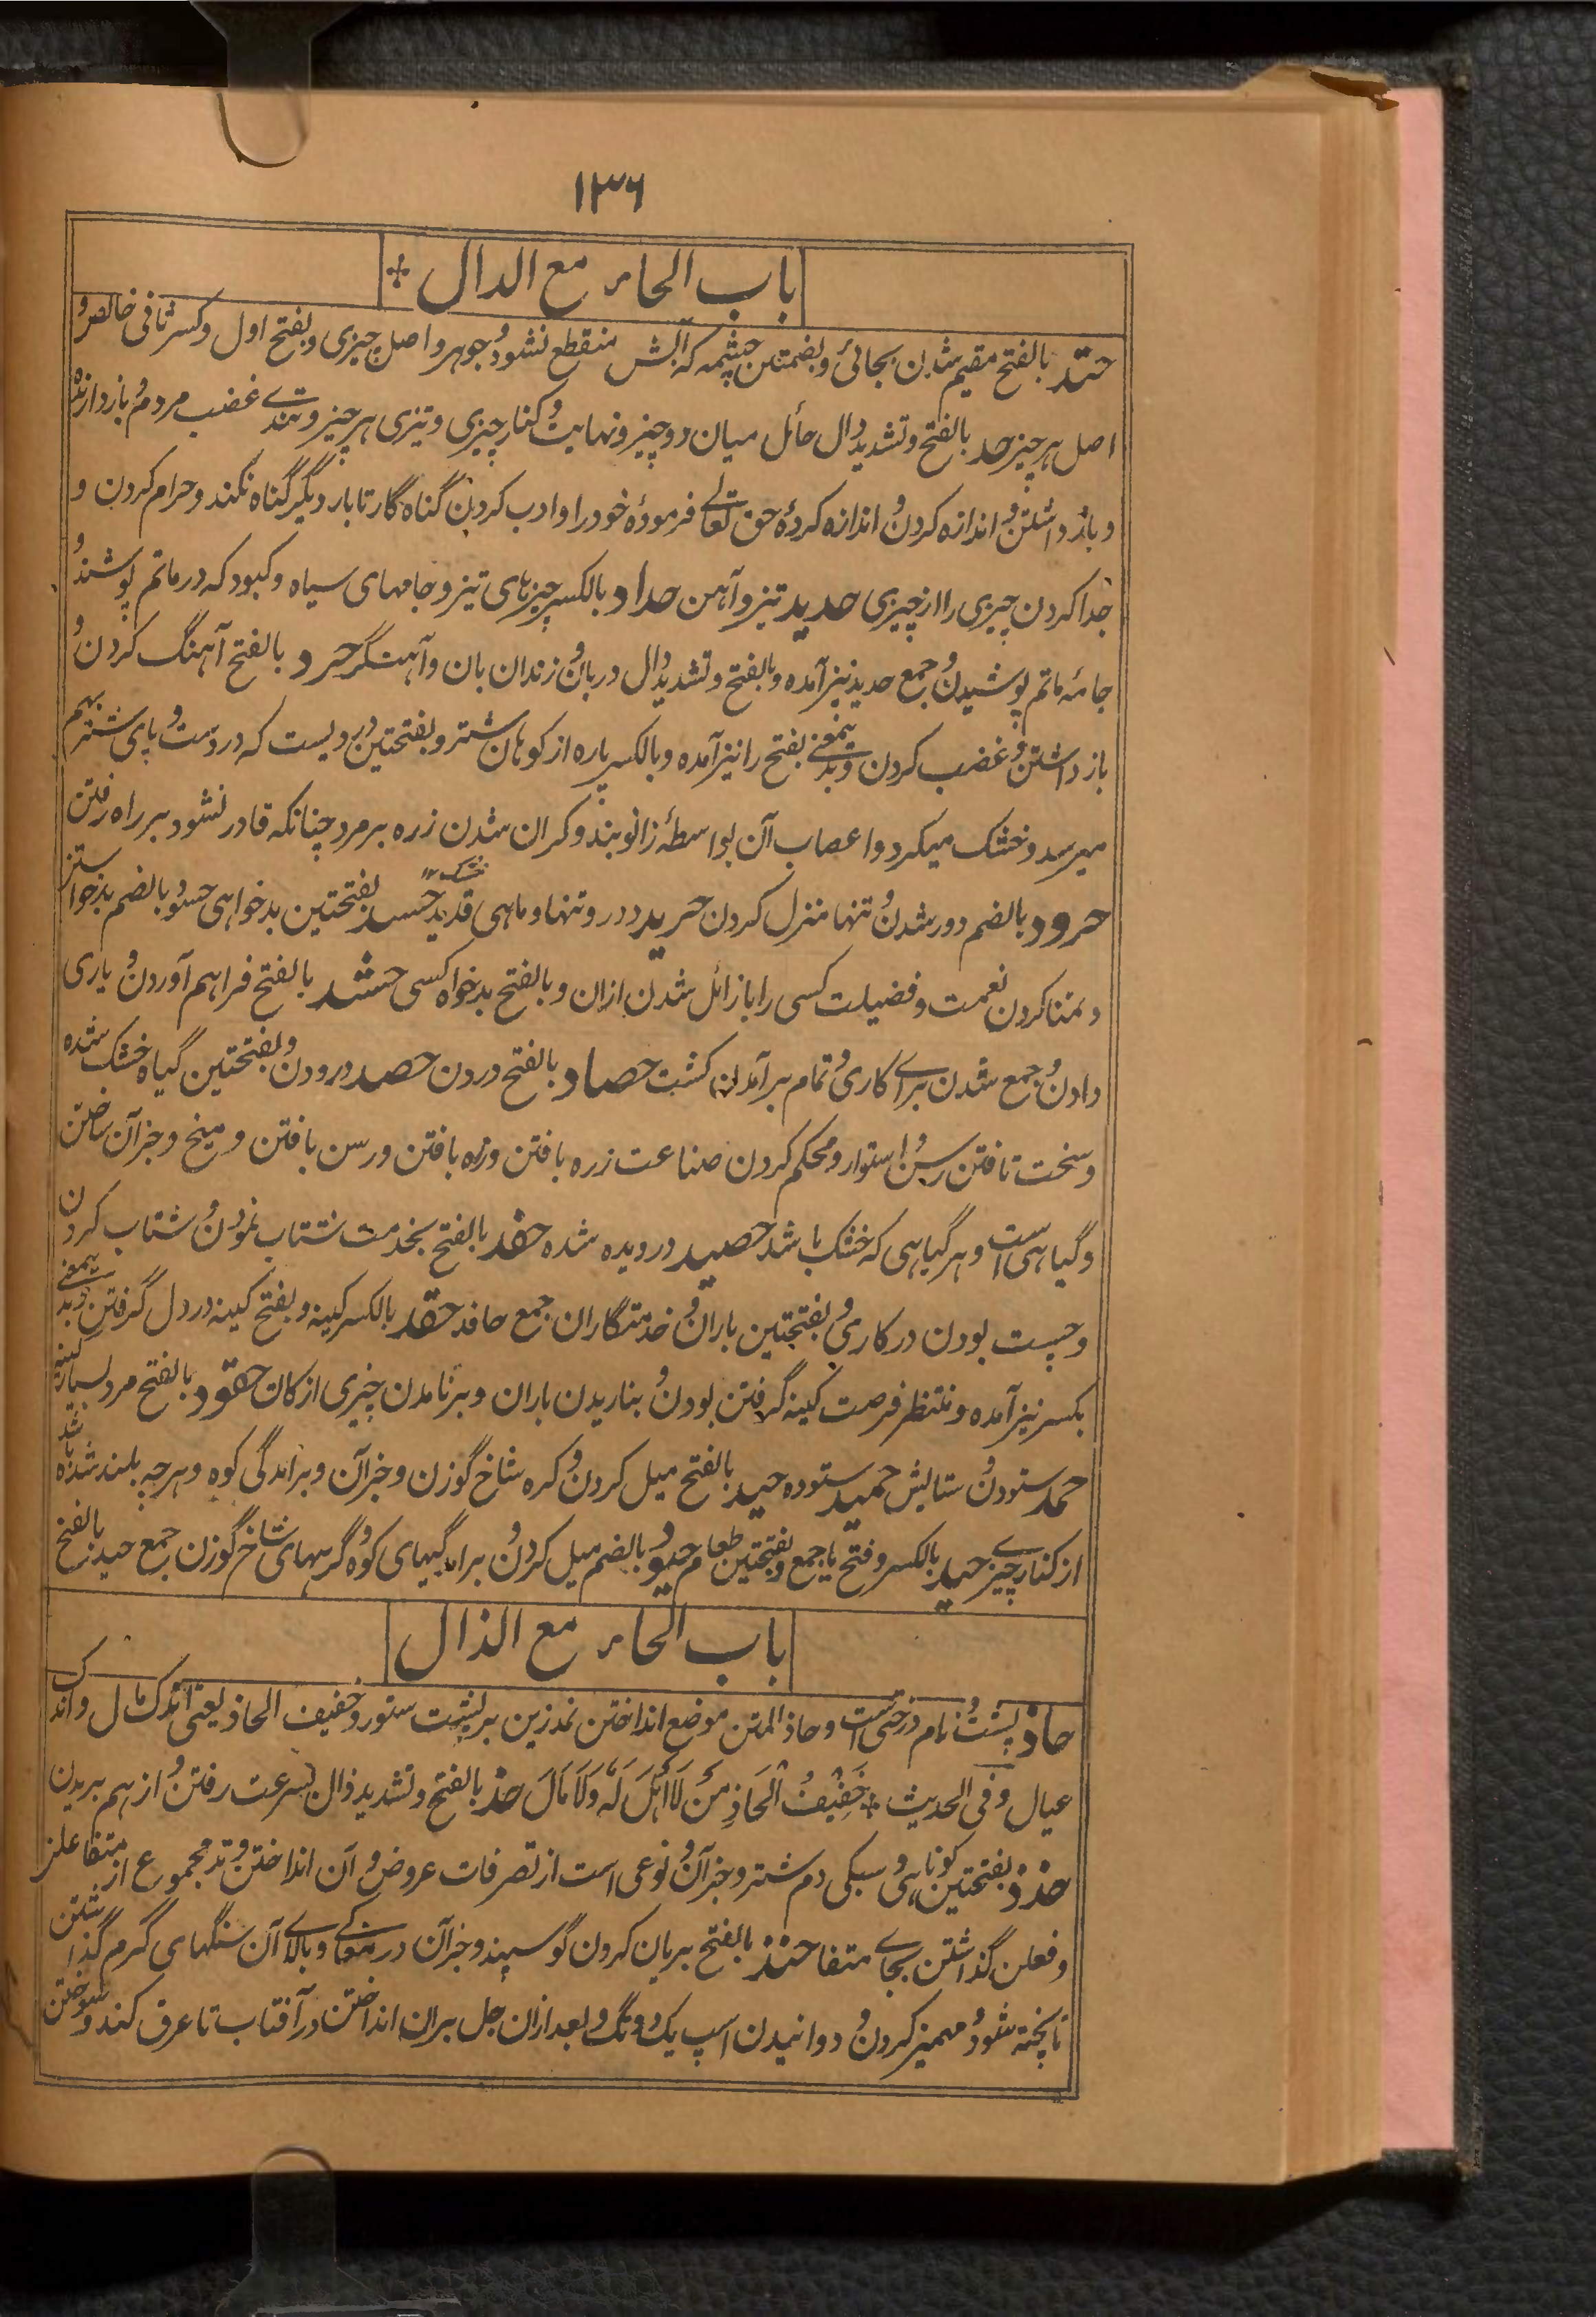 ١٣٦
باب الحاء مع الدال +
حتد بالفتح مقیم شدن بجائی و بضمتین چشمه که آبش منقطع نشود و جوهر و اصل چیزی و بفتح اول و کسر ثانی خالص و
اصل هر چیز حد بالفتح و تشدید دال حائل میان دو چیز و نهایت و کنار چیزی و تیزی هر چیز و تندے غضب مردم و باز دارنده
و باز داشتن و اندازه کردن و اندازه کردهٔ حق تعالے فرمودهٔ خود را و ادب کردن گناه گار تا بار دیگر گناه نکند و حرام کردن و
جدا کردن چیزی را از چیزی حدید تیز و آهن حداد بالکسر چیزهای تیز و جامهای سیاه و کبود که در ماتم پوشند و
جامهٔ ماتم پوشیدن و جمع حدید نیز آمده و بالفتح و تشدید دال دربان و زندان بان و آهنگر حرد بالفتح آهنگ کردن و
باز داشتن و غضب کردن و بدینمعنی بفتح را نیز آمده و بالکسر پاره از کوهان شتر و بفتحتین دردیست که در دست و پای شتر بهم
میرسد و خشک میگردد اعصاب آن بواسطهٔ زانو بند و گران شدن زره بر مرد چنانکه قادر نشود بر راه رفتن
حرود بالضم دور شدن و تنها منزل کردن حرید دور و تنها و ماهی قدید خشک ۱۲ حسد بفتحتین بدخواهی حسود بالضم بدخواستن
و تمنا کردن نعمت و فضیلت کسی را با زائل شدن ازان و بالفتح بدخواه کسی حشد بالفتح فراهم آوردن و یاری
دادن و جمع شدن براے کاری و تمام برآمدن کشت حصاد بالفتح دردن حصد درودن و بفتحتین گیاه خشک شده
و سخت تافتن رسن و استوار و محکم کردن صناعت زره بافتن و زه بافتن و رسن بافتن و میخ و جز آن ساختن
و گیاهی است و هر گیاهی که خشک باشد حصید درویده شده حفد بالفتح بخدمت شتاب نمودن و شتاب کردن
و چست بودن در کاری و بفتحتین یاران و خدمتگاران جمع حافد حقد بالکسر کینه و بفتح کینه در دل گرفتن و بدینمعنی
بکسر نیز آمده و منتظر فرصت کینه گرفتن بودن و بناریدن باران و برنامدن چیزی از کان حقود بالفتح مرد بسیار کینه
حمد ستودن و ستایش حمید ستوده حید بالفتح میل کردن و گره شاخ گوزن و جز آن و برآمدگی کوه و هر چه بلند شده باشد
از کنارے چیز حید بالکسر و فتح یا جمع و بفتحتین طعام حیود بالضم میل کردن و برآمدگیهای کوه و گرههای شاخ گوزن جمع حید بالفتح
باب الحاء مع الذال
حاذ پشت و نام درختی است و حاذ المتن موضع انداختن نمد زین بر پشت ستور و خفیف الحاذ یعنی اندک مال و اندک
عیال و فی الحدیث + خَفِیْفُ الْحَاذِ مَنْ لَا اَهْلَ لَهٗ وَلَا مَالَ حذ بالفتح و تشدید ذال بسرعت رفتن و از هم بریدن
حذذ بفتحتین کوتاهی و سبکی دم شتر و جز آن و نوعی است از تصرفات عروض و آن انداختن وتد مجموع از متفاعلن
و فعلن گذاشتن بجاے متفا حنذ بالفتح بریان کردن گوسپند و جز آن در مغاکے و بالاے آن سنگهای گرم گذاشتن
تا پخته شود و مهمیز کردن و دوانیدن اسپ یک و دو تگ و بعد ازان جل بران انداختن در آفتاب تا عرق کند و سوختن